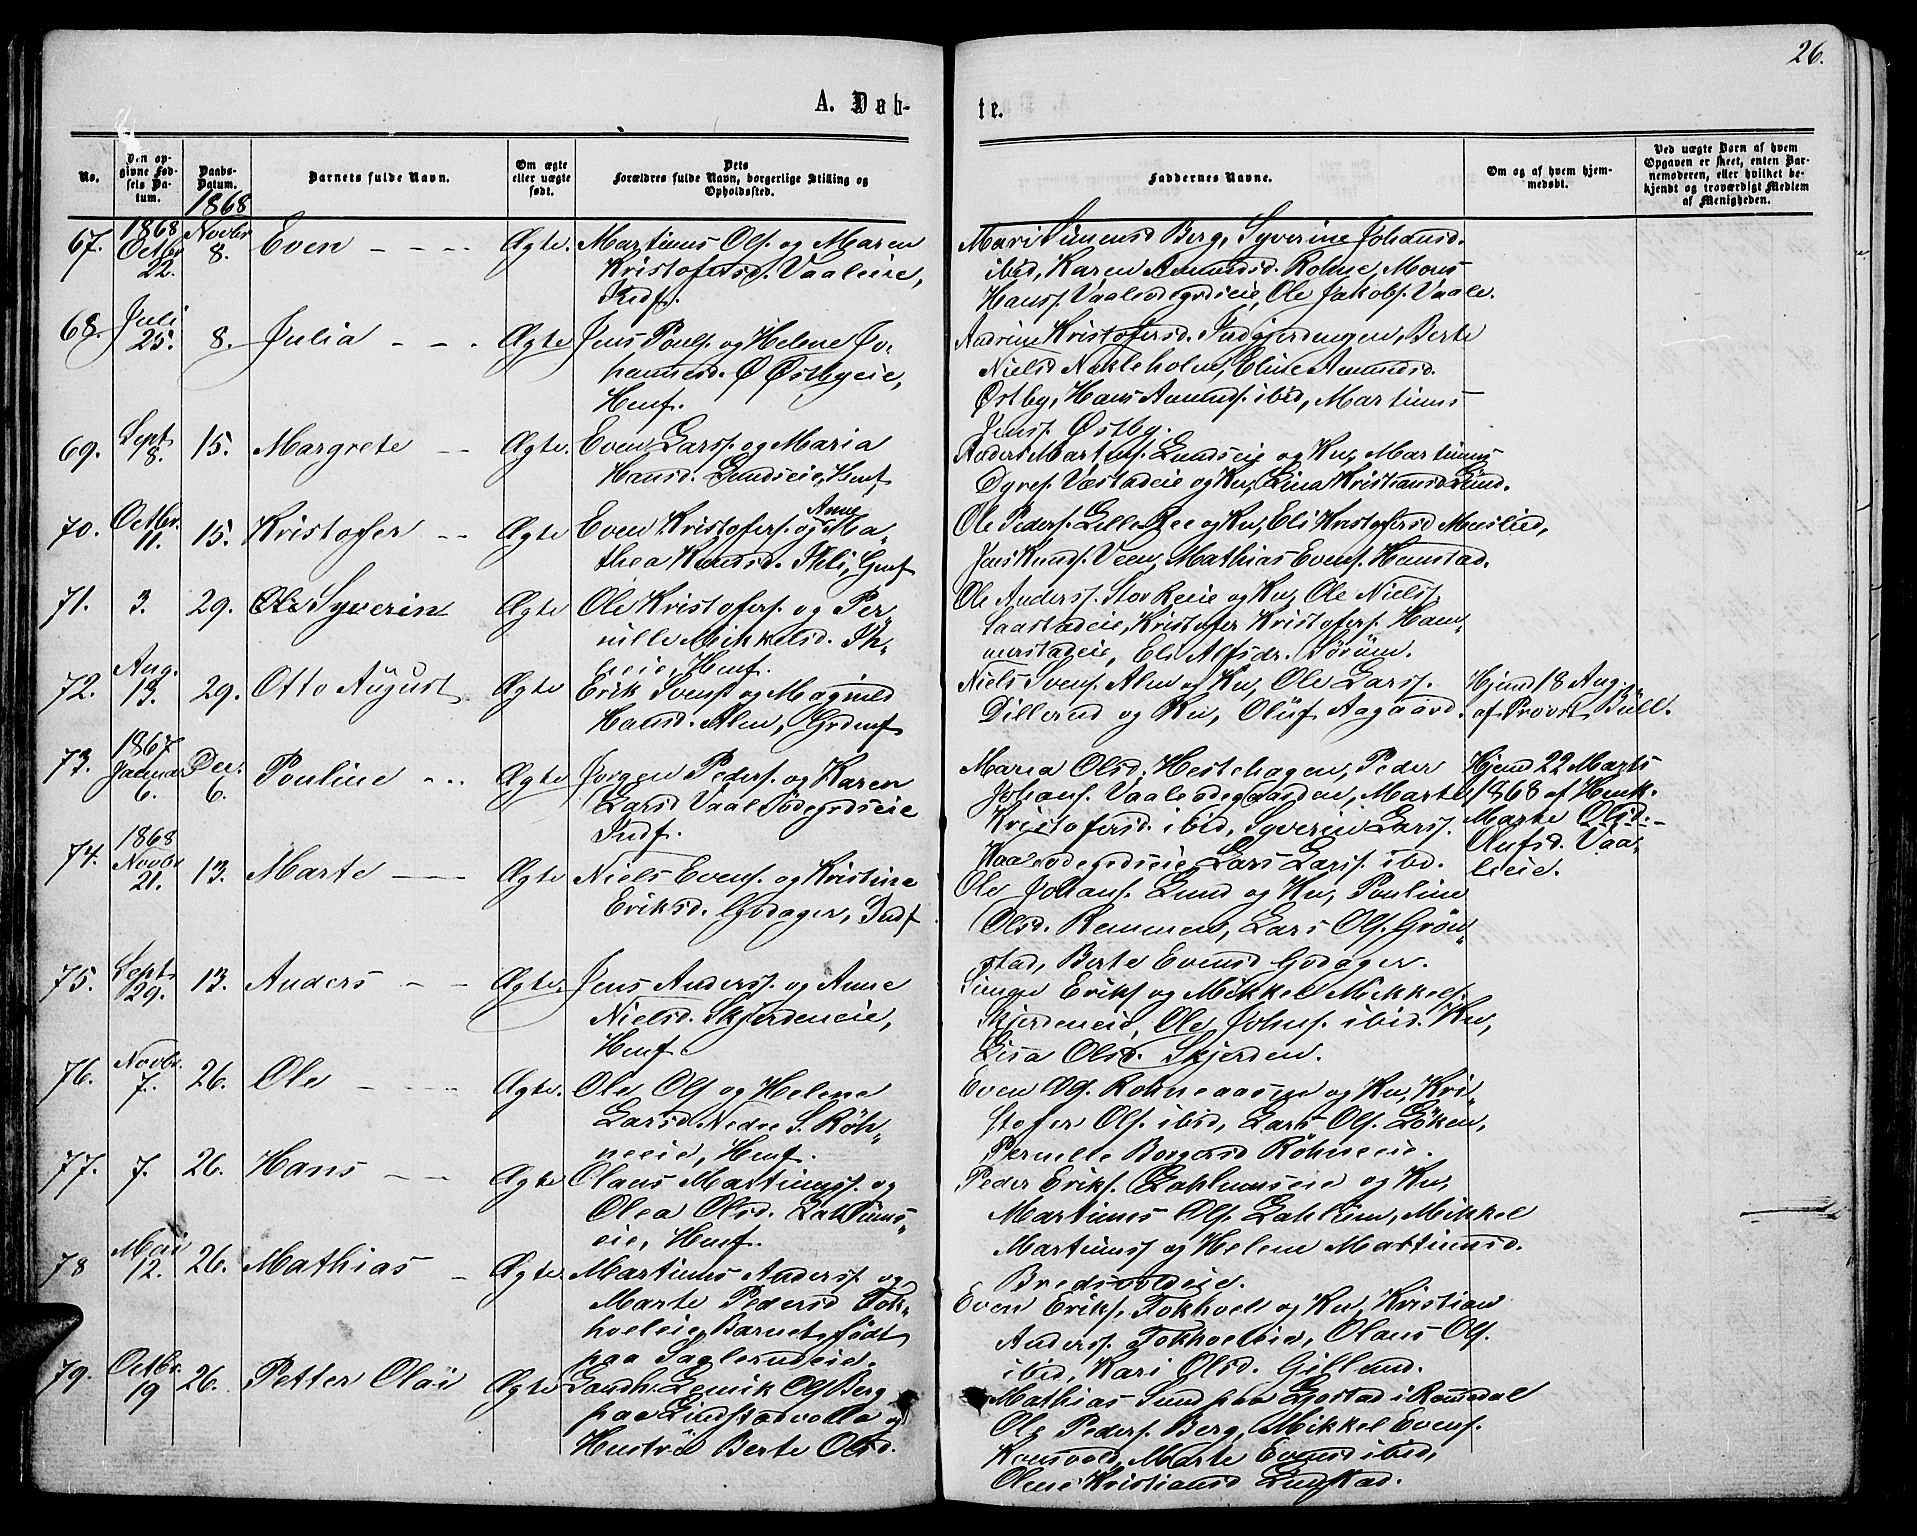 26.
A. Døb-
te.
No.
Den op-
givne Fød-
sels Da-
tum.
Daabs-
Datum.
1868
Barnets fulde Navn.
Om ægte
eller uægte
født.
Dets
Forældres fulde Navn, borgerlige Stilling og
Opholdssted.
Faddernes Navne.
Om og af hvem hjem-
medøbt.
Ved uægte Børn af hvem
Opgaven er skeet, enten Bar-
nemoderen, eller hvilket be-
kjendt og troværdigt Medlem
af Menigheden.
67. 1868 Octbr 22. Novbr 8. Even Ægte. Martinus Ols. og Maren
Kristofersd. Vaaleeie,
Indf.
Mari Simensd Berg, Syverine Johansd.
ibid, Karen Amundsd. Rohne, Mons
Hansf. Vaaleødegrdseie, Ole Jakobf. Vaale.
68. Juli 25. 8. Julia Ægte Jens Poulf. og Helene Jo-
hannesd. Ø Østbyeie,
Husf.
Andrine Kristofersd. Indgjerdengen, Berte
Nielsd Nakleholm, Eline Amundsd.
Østby, Hans Amundf. ibid, Martinus
Jensf. Østby.
69. Sept 8. 15. Margrete Ægte. Even Larsf. og Maria
Hansd. Lundseie, Husf
Anders Martinf. Lundseie og Ku, Martinus
Dyref. Væstadeie og Ku, Lina Kristiansd Lund.
70. Octbr. 11. 15. Kristofer Ægte Even Kristofersf. og Anne Ma-
thea Knudsd. Thli, Gmf
Ole Pedersf. Lille Ree og Ku, Eli Kristofersd Muslied,
Jens Knudsf. Veen, Mathias Evenf. Hamstad.
71. 3. 29. Ole Syverin Ægte Ole Kristofersf. og Per-
nille Mikkelsd. Th-
lieie, Husf.
Ole Andersf. Stor Reeie og Ku, Ole Nielsf.
Saastadeie, Kristofer Kristofersf. Ham-
merstadeie, Eli Alfsdr. Sørum.
72. Aug. 13. 29. Otto August Ægte Erik Svensf og Magnild
Hansd. Alm, Grdmf
Niels Svenf. Alm og Ku, Ole Larsf.
Dillerud og Ku, Oluf Aagaard.
Hjemd 18 Aug.
af Provst Bull.
73. 1867 Januar 6. Dec. 6. Pouline Ægte Jørgen Pedersf. og Karen
Larsd Vaaleødegrdseie
Indf.
Maria Olsd. Hestehagen, Peder
Johansf. Vaaleødegaarden, Marte
Kristofersd. ibid, Syverin Larsf.
Vaaleødegrdseie, Lars Larsf. ibd.
Hjemd 22 Marts
1868 af Husk.
Marte Olsd.
Aufsd. Vaa-
leeie.
74. 1868 Novbr 21. 13. Marte Ægte Niels Evenf. og Kristine
Eriksd. Godager, Indf
Ole Johansf. Lund og Ku, Pouline
Olsd. Remmen, Lars Olf. Grøn-
stad, Berte Evensd Godager.
75. Sept 29. 13. Anders Ægte. Jens Andersf. og Anne
Nielsd. Skjerdeneie,
Husf.
Simen Eriksf og Mikkel Mikkelsf.
Skjerdeneie, Ole Johnf. ibid. Ku,
Lisa Olsd. Skjerden.
76. Novbr. 7. 26. Ole Ægte. Ole Olf og Helene
Larsd Nedre S. Røh-
neeie, Husf.
Even Olf. Rohneaasen og Ku, Kri-
stofer Olf. ibid, Lars Olf. Løken,
Pernelle Borgersd Røhneeie.
77. 7. 26. Hans Ægte Olaus Martinusf. og
Olea Olsd. Lahlums-
eie, Husf.
Peder Eriksf. Lahlumseie og Ku,
Martinus Olf. Lahlum, Mikkel
Martinusf og Helene Martinusd.
Bredsvoldeie.
78 Mai 12. 26. Mathias Ægte. Martinus Andersf. og
Marte Pedersd Tok-
hoeleie, Barnet født
paa Saglerudeie.
Even Eriksf. Tokhoel og Ku, Kristian
Andersf. Tokhoeleie, Olaus Olf.
ibid, Kari Olsd. Gillund.
79. Octbr. 19 26. Petter Olai Ægte Landh. Lemik Olf Berg
paa Lindstadvolla og
Hustrø Berte Olsd.
Mathias Sund paa Lystad i Romedal
Ole Pedersf. Berg, Mikkel Evenf.
Konsvold, Marte Evensd ibid,
Olene Kristiansd Lindstad.